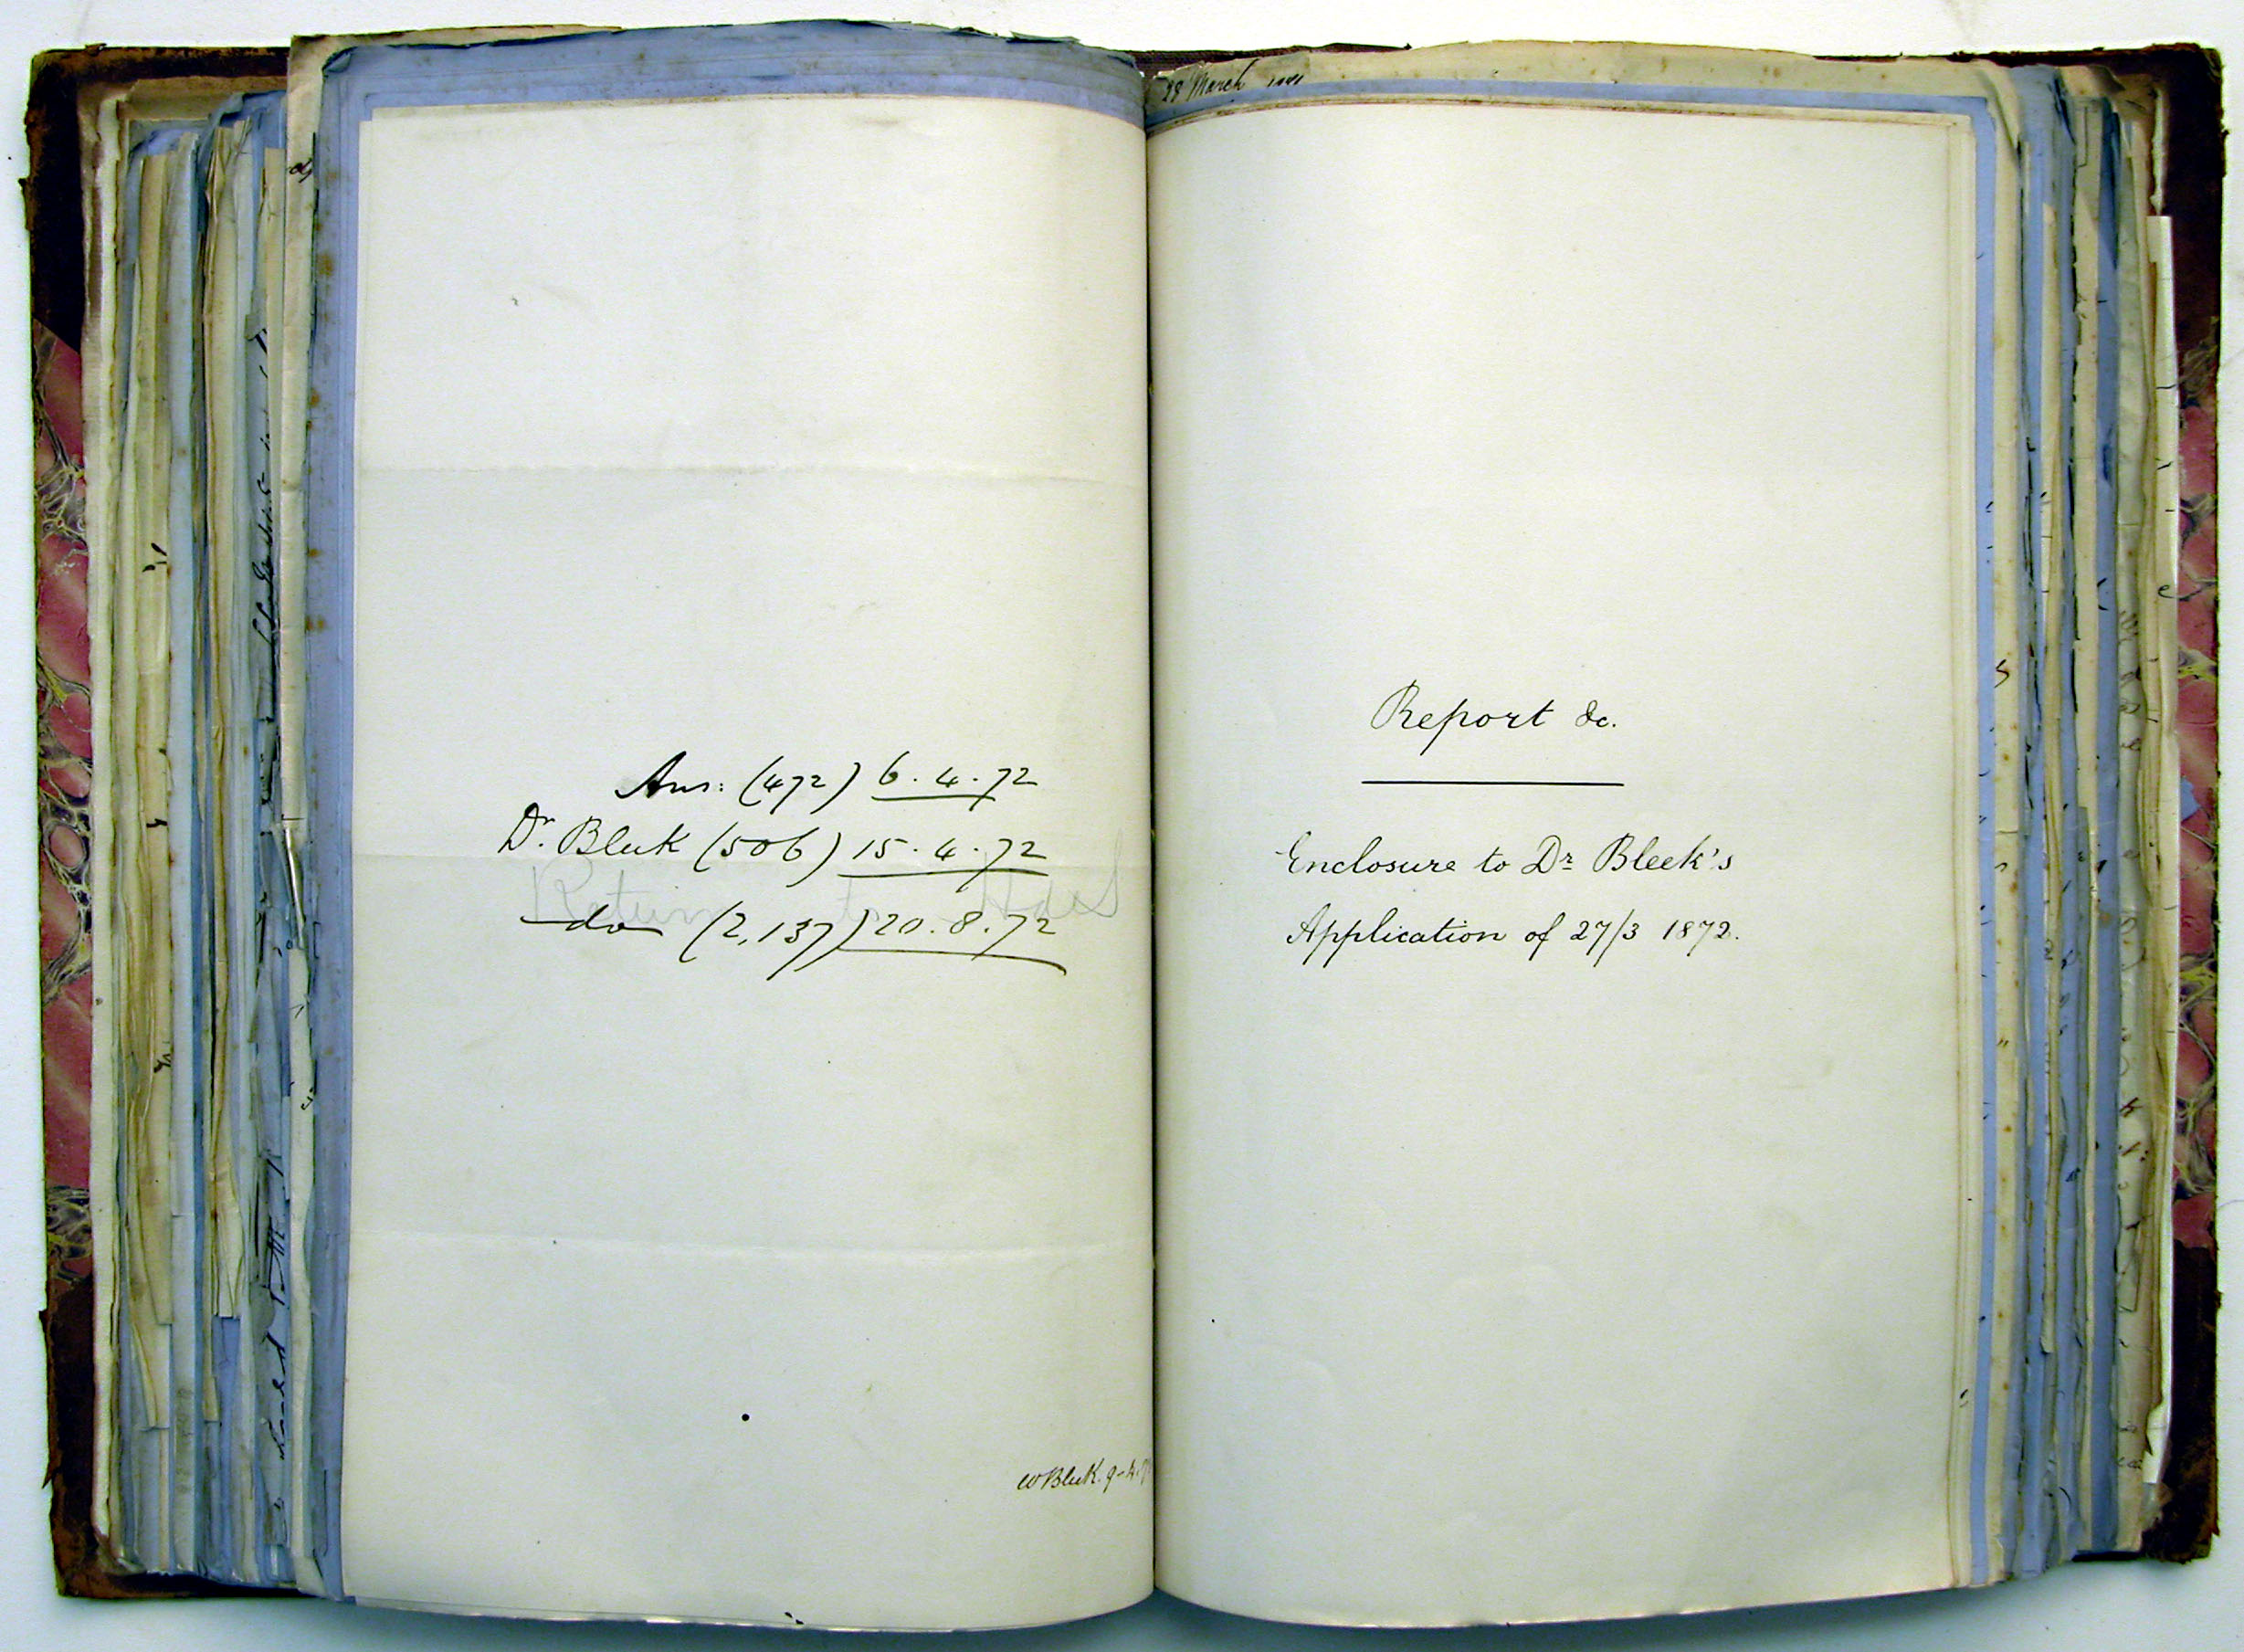 Ans: (472) 6.4.72
Dr. Bleek (506) 15.4.72
Return to
do (2,137) 20.8.72
W Bleek. 9-4-
28 March
Report &c.
Enclosure to Dr Bleek's
Application of 27/3 1872.